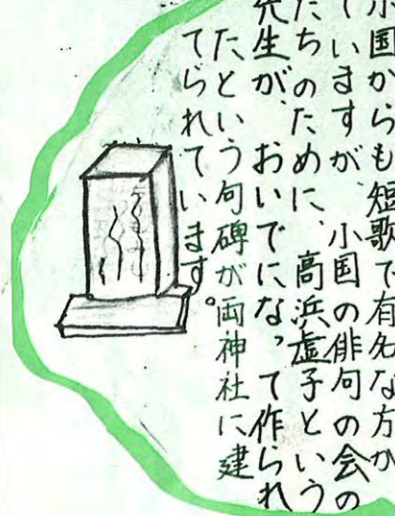 小国からも短歌で有名な方が
ていますが、小国の俳句の会の
たちのために、高浜虚子という
先生が、おいでになって作られ
たという句碑が両神社に建
てられています。